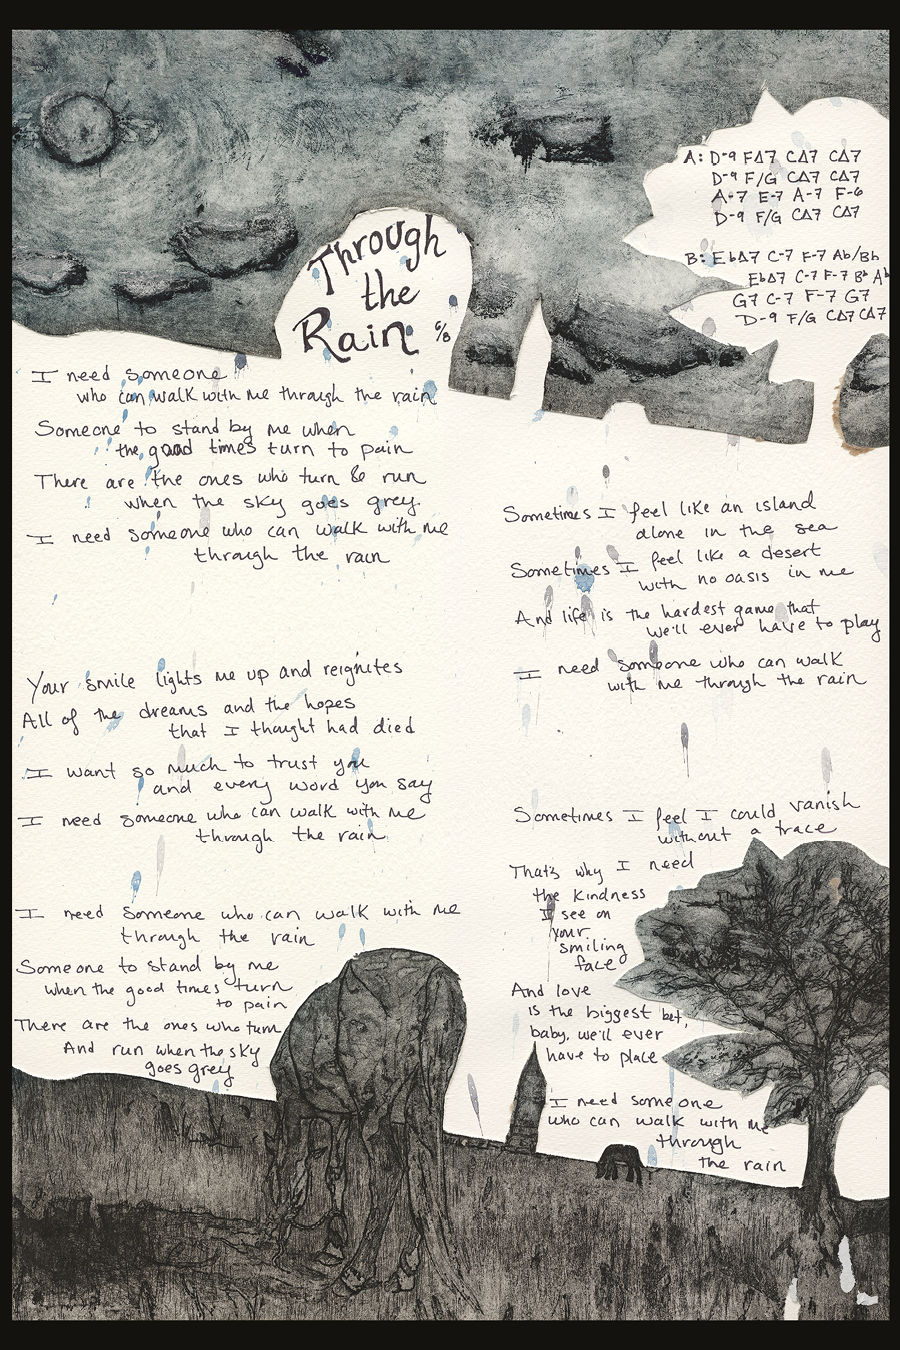 Through
the
Rain 6/8
A: D-9 F∆7 C∆7 C∆7
D-9 F/G C∆7 C∆7
A-7 E-7 A-7 F-6
D-9 F/G C∆7 C∆7
B: Eb∆7 C-7 F-7 Ab/Bb
Eb∆7 C-7 F-7 Bb Ab
G7 C-7 F-7 G7
D-9 F/G C∆7 C∆7
I need someone
who can walk with me through the rain
Someone to stand by me when
the good times turn to pain
There are the ones who turn & run
when the sky goes grey
I need someone who can walk with me
through the rain
Your smile lights me up and reignites
All of the dreams and the hopes
that I thought had died
I want so much to trust you
and every word you say
I need someone who can walk with me
through the rain
I need someone who can walk with me
through the rain
Someone to stand by me
when the good times turn
to pain
There are the ones who turn
And run when the sky
goes grey
Sometimes I feel like an island
alone in the sea
Sometimes I feel like a desert
with no oasis in me
And life is the hardest game that
we'll ever have to play
I need someone who can walk
with me through the rain
Sometimes I feel I could vanish
without a trace
That's why I need
the kindness
I see on
your
smiling
face
And love
is the biggest bet,
baby, we'll ever
have to place
I need someone
who can walk with me
through
the rain